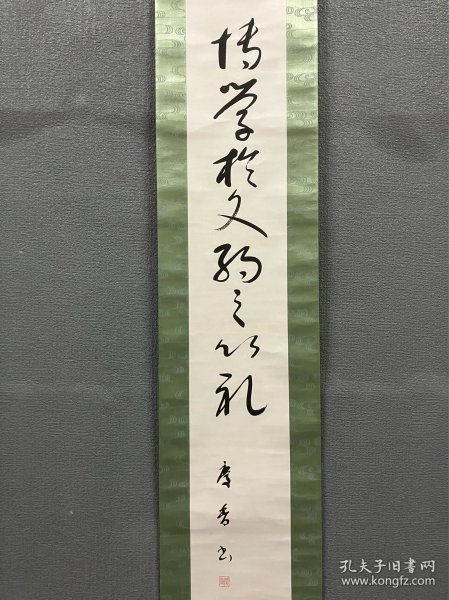 博学於文約之以礼
香书
孔夫子旧书网
www.kongfz.com